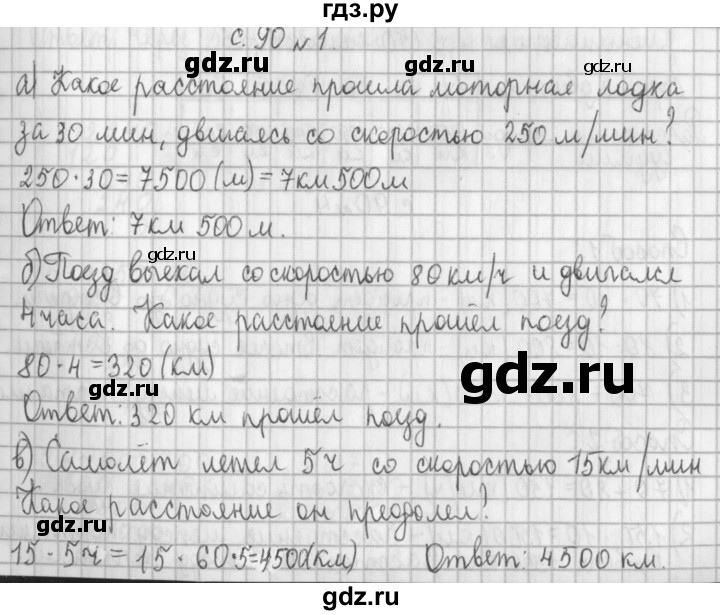 гдз.ру
с. 90 №1.
gdz.ru
gdz.ru
а) Какое расстояние прошла моторная лодка
за 30 мин, двигаясь со скоростью 250 м/мин?
gdz.ru
gdz.ru
250·30=7500 (м)=7км 500м
Ответ: 7 км 500 м.
gdz.ru
б) Поезд выехал со скоростью 80 км/ч и двигался
4 часа. Какое расстояние прошёл поезд?
80·4=320 (км)
gdz.ru
gdz.ru
Ответ: 320 км прошёл поезд.
в) Самолёт летел 5 ч со скоростью 15 км/мин
Какое расстояние он преодолел?
gdz.ru
gdz.ru
15·5ч = 15·60·5=4500(км) Ответ: 4500 км.
gdz.ru
gdz.ru